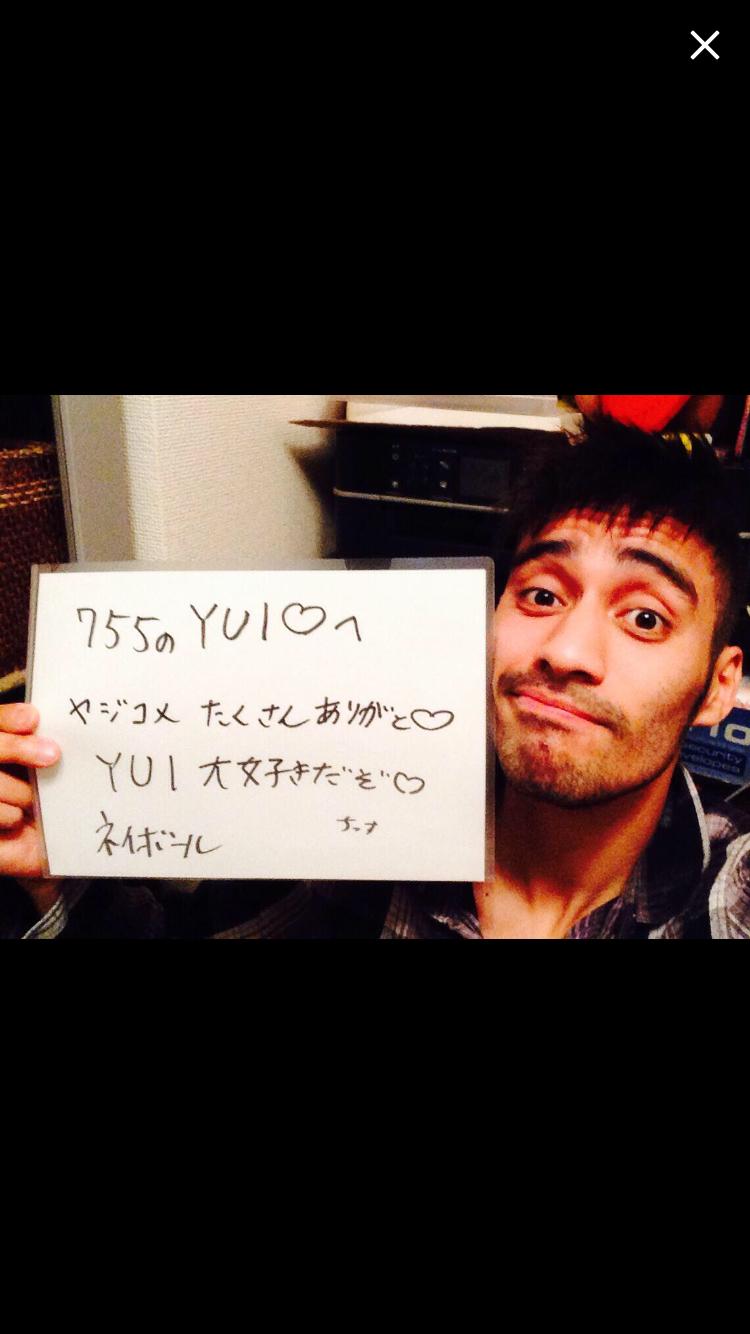 755の YUI♡へ
ヤジコメ たくさんありがと♡
YUI 大好きだぞ♡
ネイボール
security